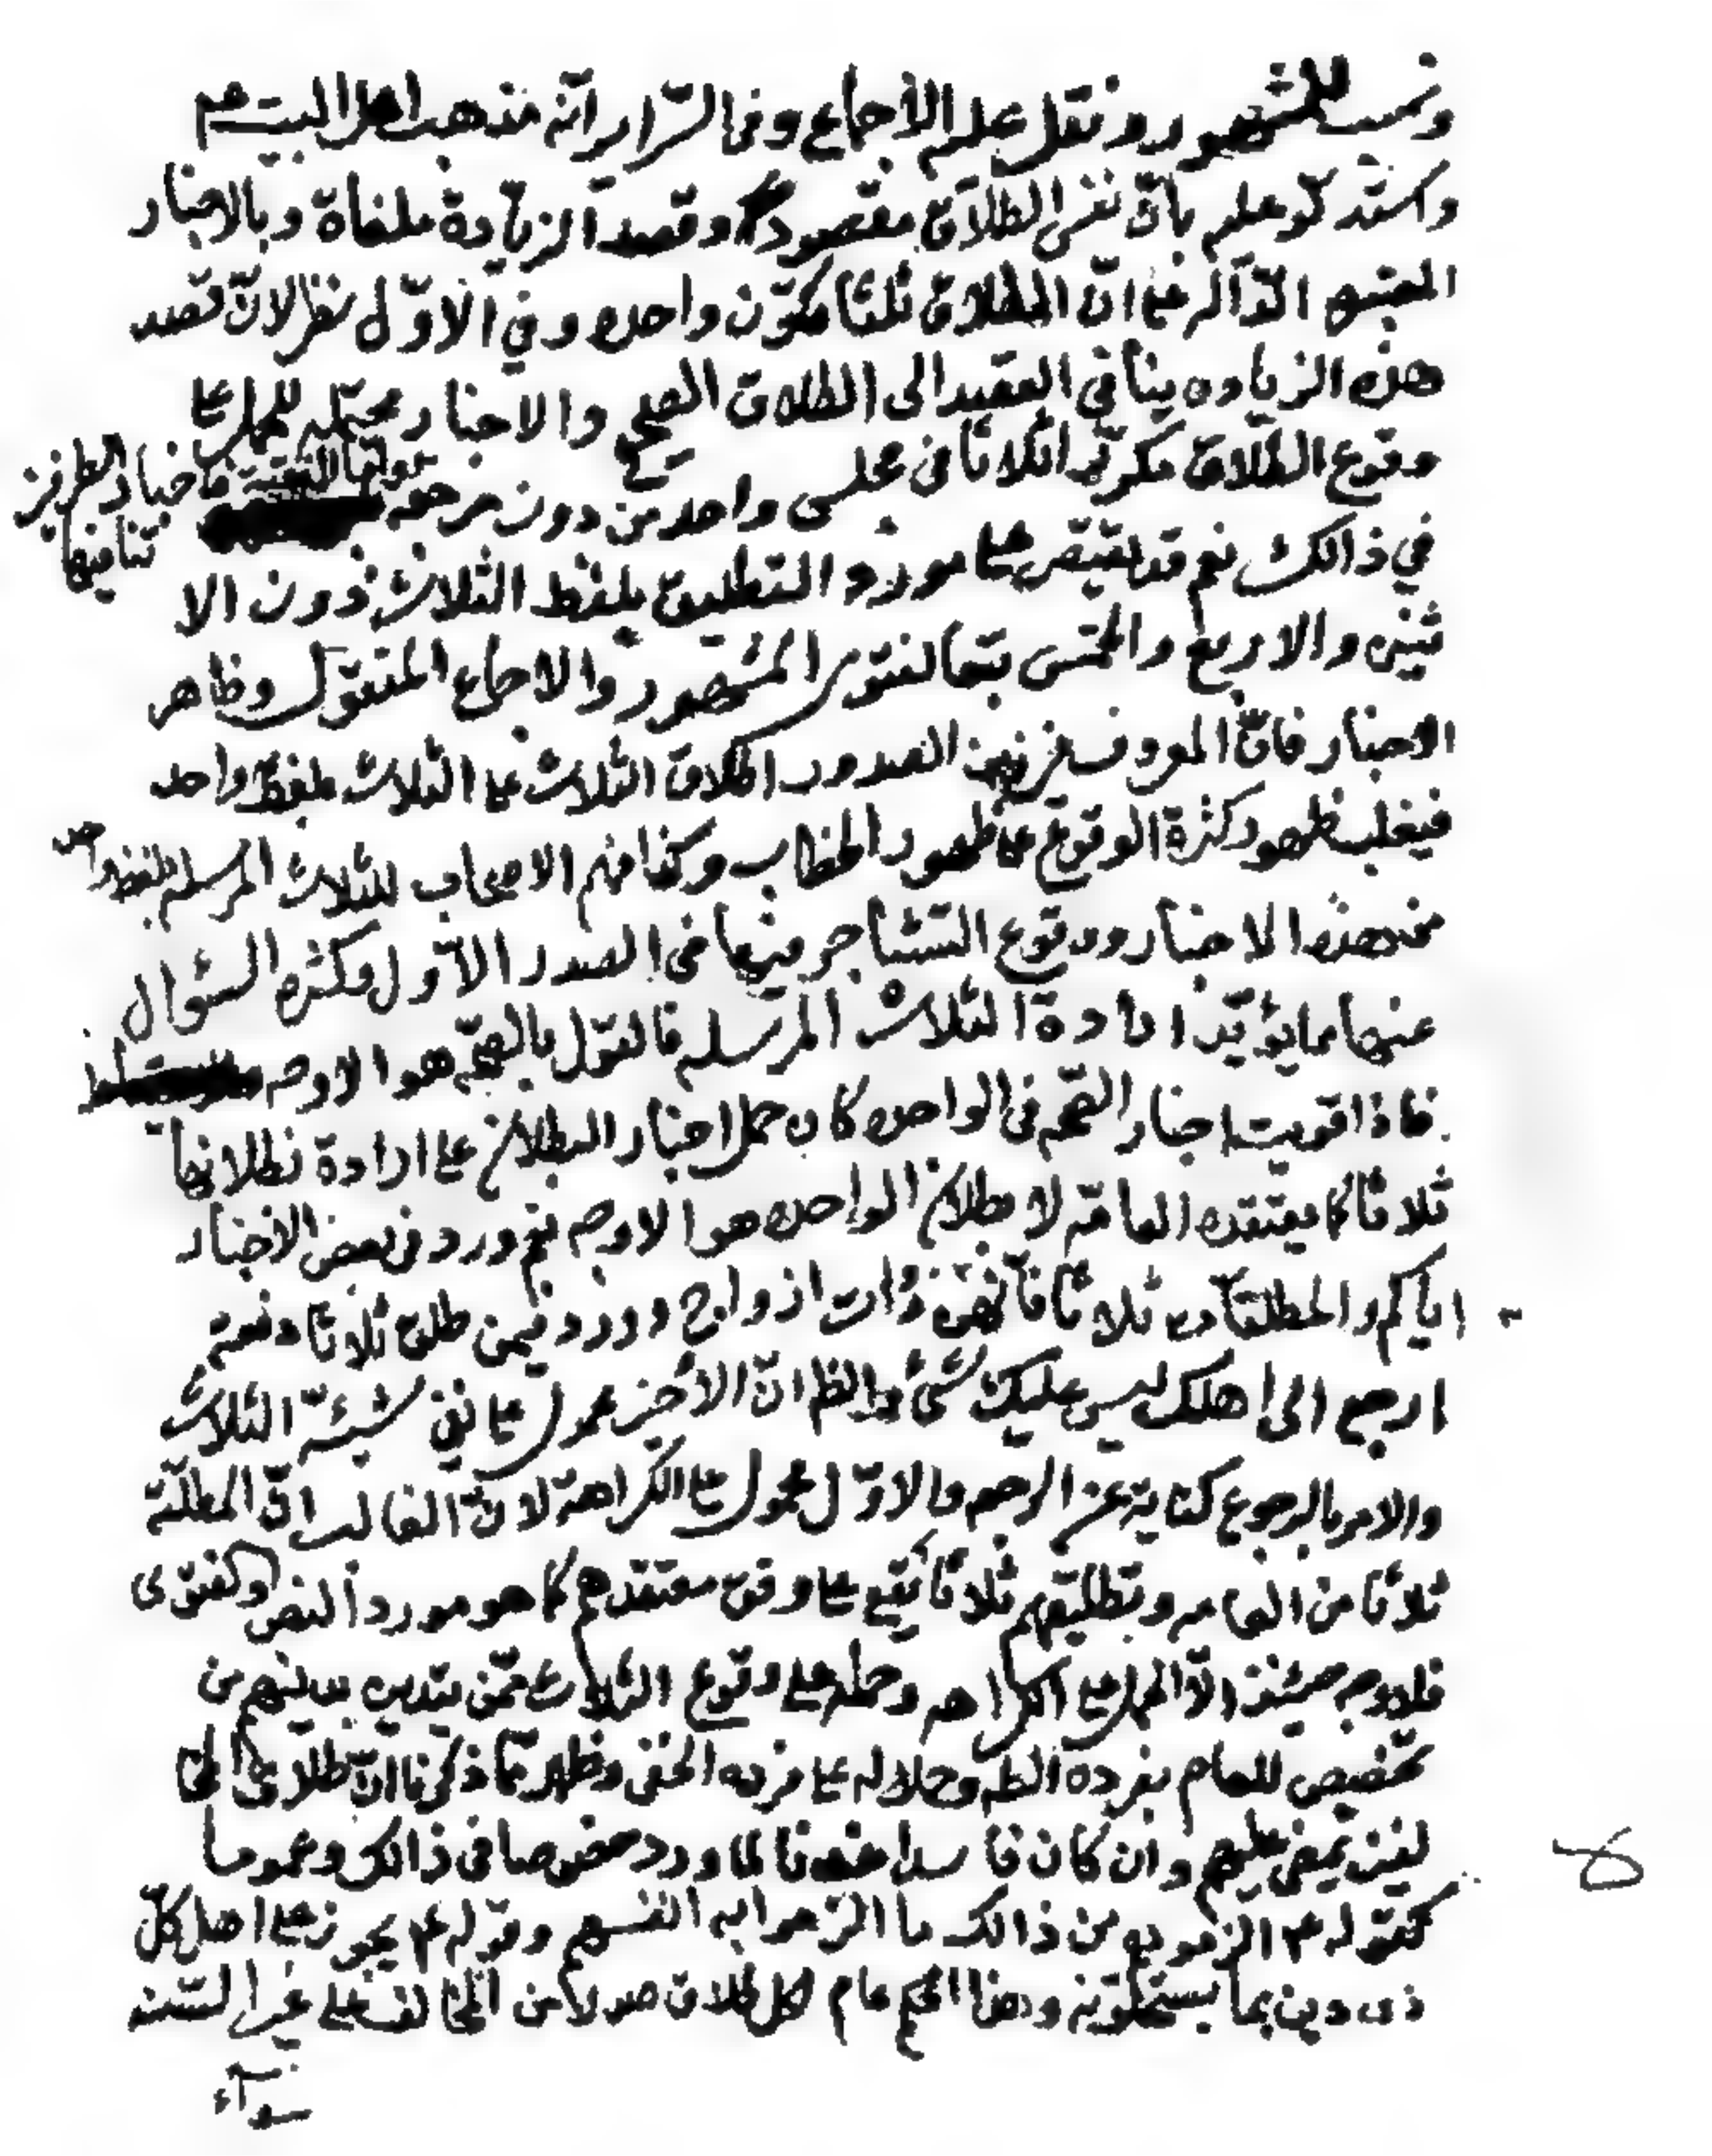 ونسب للمشهور ونقل عليه الاجماع وفي السّراير انّه مذهب اهل البيت عم
واستدلّو عليه بانّ نفس الطلاق مقصوده وقصد الزيّادة ملغاة وبالاخبار
المعتبره الدّالّه على انّ الطلاق ثلثا مكوّن واحده وفي الاوّل نظر لانّ قصد
هذه الزياده ينافي القصد الى الطلاق الصحيح والاخبار محتمله للحمل على
وقوع الطلاق مكررا ثلاثا في مجلس واحد من دون مرجعه فاخبار الطرفين
تنافيها
في ذالك نعم قد يقتصر على مورد التطليق بلفظ الثلاث دون الا
ثنين والاربع والخمس بتعا لفتوى المشهور والاجماع المنقول وظاهر
الاخبار فانّ المعروف في زمن الصدور اطلاق الثلاث على الثلاث بلفظ واحد
فيغلب ظهور كثرة الوقوع على ظهور الخطاب وكذا فهم الاصحاب للثلاث المرسله بلفظ واحد
من هذه الاخبار ووقوع التشاجر فيها في الصدر الاوّل وكثره السؤال
عنها مما يؤيّد ارادة الثلاث المرسله فالقول بالصحّه هو الاوجه
فاذا قويت اخبار الصّحه في الواحده كان حمل اخبار البطلان على ارادة بطلانها
ثلاثا كما يعتقده العامّه لا بطلان الواحده هو الاوجه نعم ورد في بعض الاخبار
ايّاكم والمطلقات ثلاثا فانّهن ذوات ازواج وورد فيمن طلق ثلاثا دفعة
ارجع الى اهلك ليس عليك شئ والظ انّ الاخير محمول على نفي شيئيّة الثلاث
والامر بالرجوع كناية عن الرجعه والاوّل محمول على الكراهة لانّ الغالب انّ المطلّقة
ثلاثا من العامه وتطليقهم ثلاثا يقع على وفق معتقدهم كما هو مورد النص والفتوى
فلا وجه حينئذ الّا الحمل على الكراهه وحمله على وقوع الثلاث ممّن يتديه بدينهم من
تخصيص للعام بفرده الظ وحلاله على فرده الخفي وظهر ممّا ذكرنا انّ طلاق المخا
لفين يمضي عليهم وان كان فاسدا عندنا لما ورد خصوصا في ذالك وعموما
كقوله عم الزموهم من ذالك ما الزموا به انفسهم وقوله عم يجوز على اهل كلّ
ذى دين بما يستحلّونه وهذا الحكم عام لكل طلاق صدر من المخالف على غير السّنه
سوآء